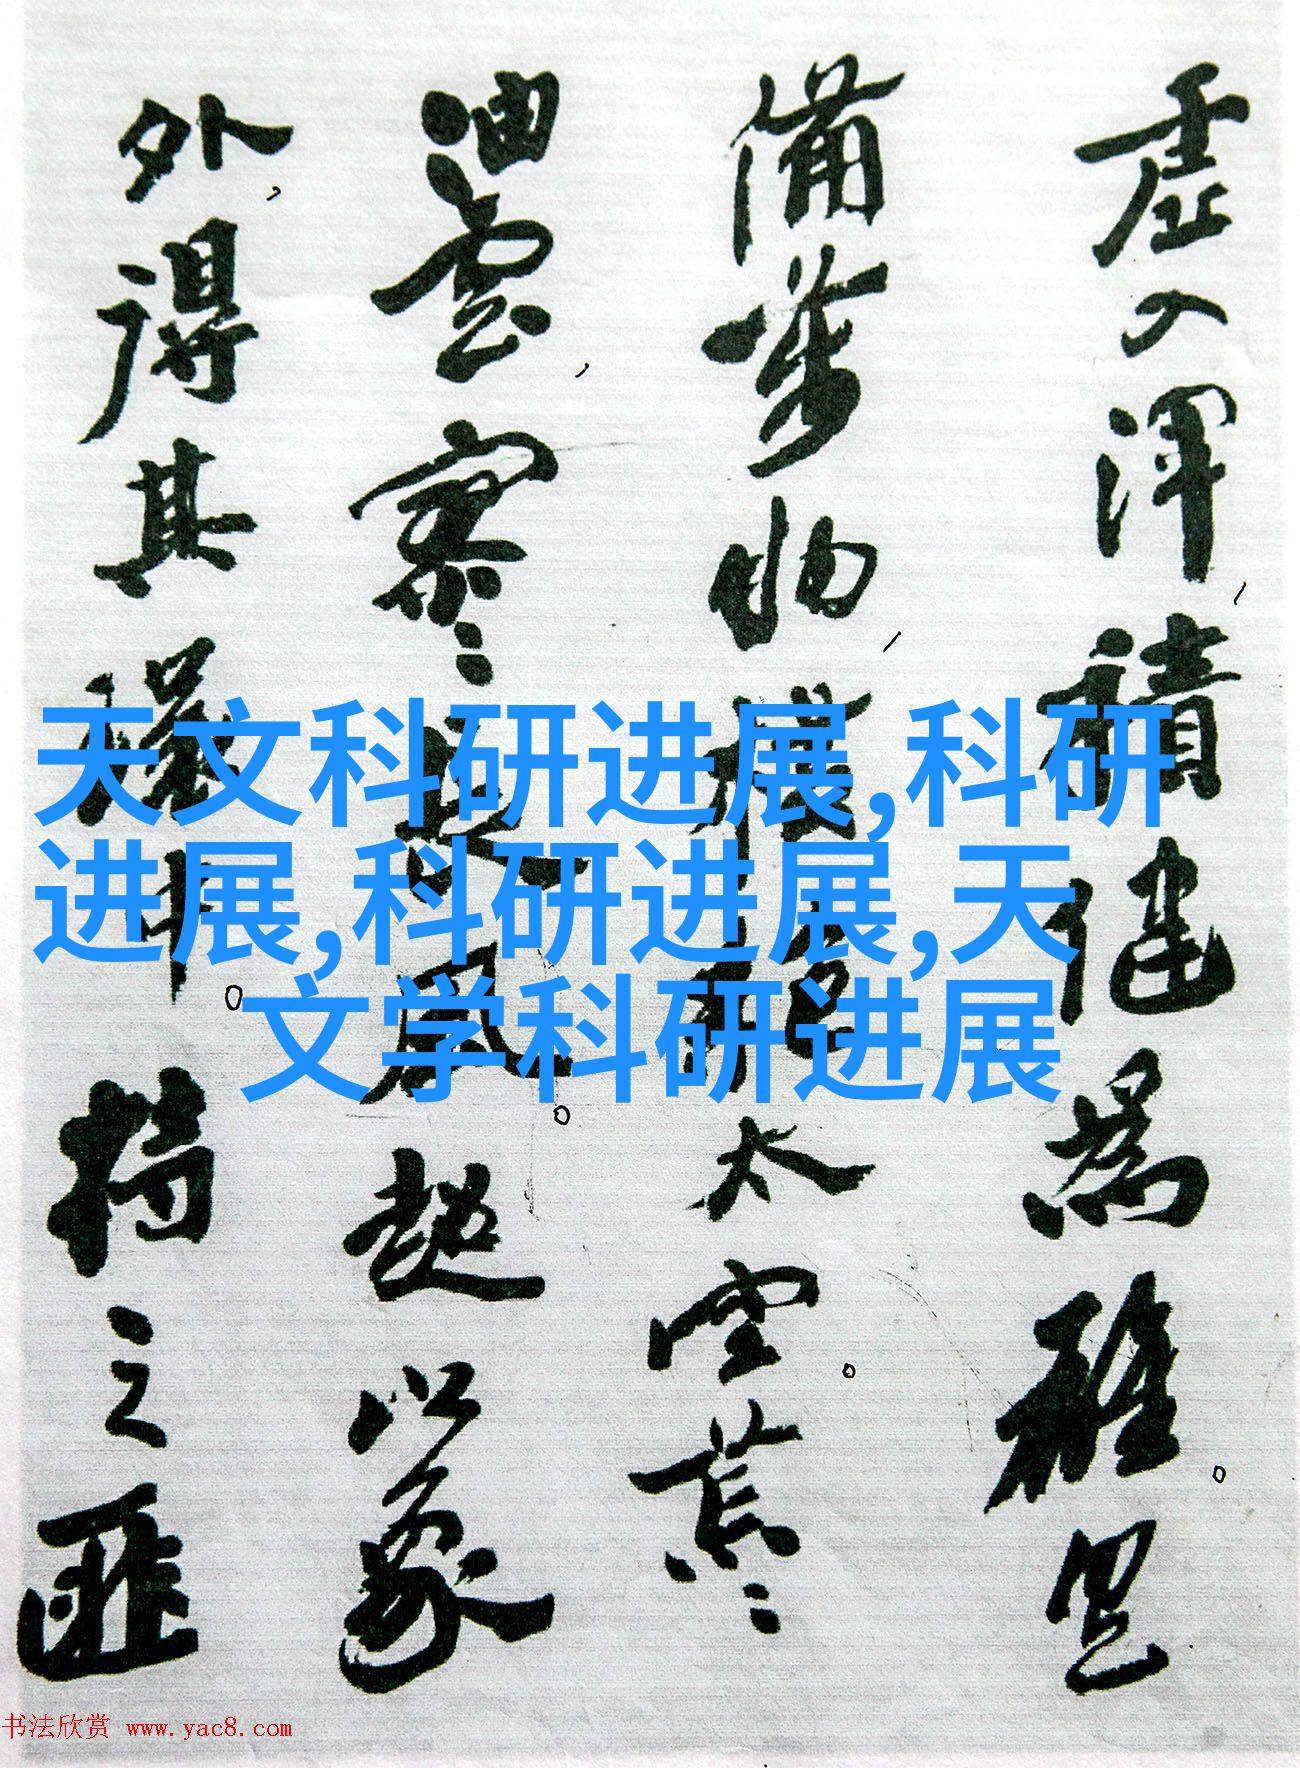 虚入渾,積健為雄。具
備萬物,橫絕太空。荒〻
油雲,寥〻長風。超以象
外,得其環中。持之匪
天文科研进展,科研
进展,科研进展,天
文学科研进展
书法欣赏 www.yac8.com